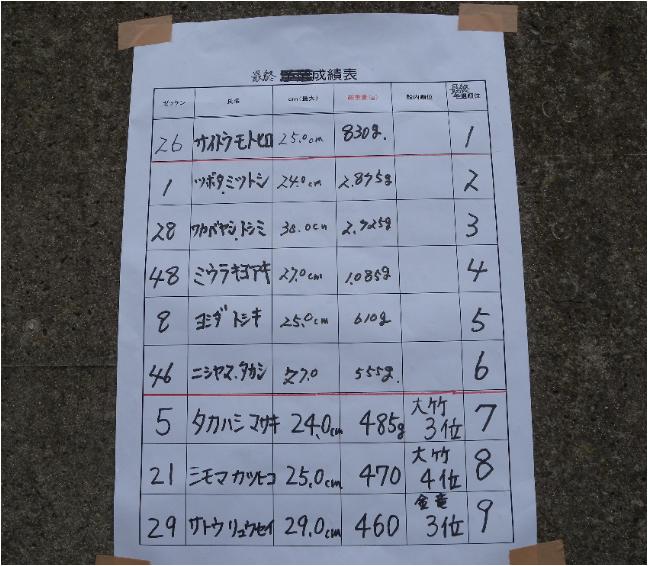 最終 成績表
ゼッケン 氏名 cm(最大) 総重量(g) 船内順位 最終 順位
26 サイトウモトヒロ 25.0cm 830g. 1
1 ツボタミツトシ 24.0cm 2.895g 2
28 ワカバヤシ.トシミ 30.0cm 3
48 ミウラキヨアキ 27.0cm 1.085g 4
8 ヨシダ トシキ 25.0cm 610g 5
46 ニシヤマ.タカシ 27.0 555g. 6
5 タカハシ マサキ 24.0cm 485g 大竹 3位 7
21 シモマ カツヒコ 25.0cm 470 大竹 4位 8
29 サトウ リュウセイ 29.0cm 460 金竜 3位 9